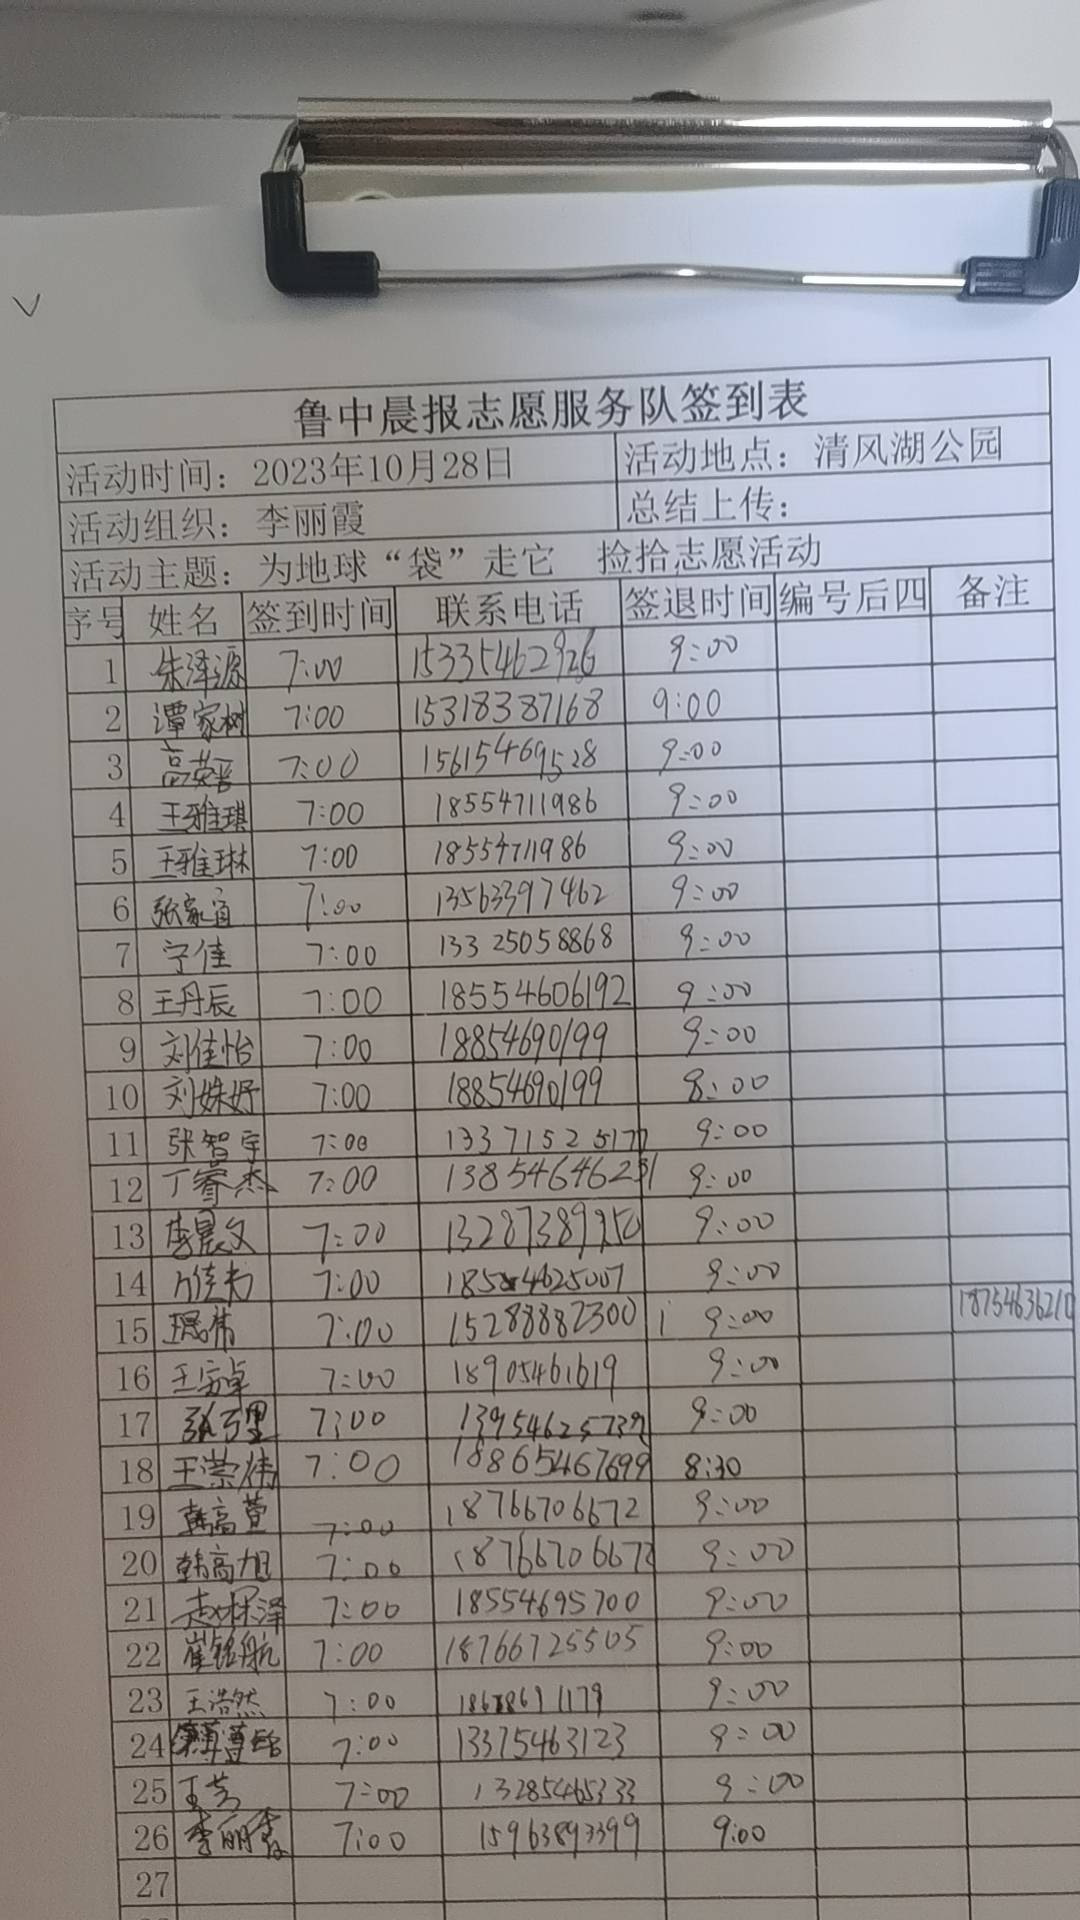 鲁中晨报志愿服务队签到表
活动时间：2023年10月28日 活动地点：清风湖公园
活动组织：李丽霞 总结上传：
活动主题：为地球“袋”走它 捡拾志愿活动
序号 姓名 签到时间 联系电话 签退时间 编号后四 备注
1 朱泽源 7:00 15335462926 9:00
2 潭家树 7:00 15318387168 9:00
3 7:00 15615469528 9:00
4 王雅琪 7:00 18554711986 9:00
5 王雅琳 7:00 18554711986 9:00
6 7:00 13563397462 9:00
7 宁佳 7:00 13325058868 9:00
8 王丹辰 7:00 18554606192 9:00
9 刘佳怡 7:00 18854690199 9:00
10 刘姝妤 7:00 18854690199 8:00
11 张智宇 7:00 13371525177 9:00
12 丁睿杰 7:00 9:00
13 李晨文 7:00 9:00
14 7:00 18554625007 9:00
15 7:00 15288882300 9:00 18754636210
16 7:00 18905461619 9:00
17 张万里 7:00 13954625739 9:00
18 王崇 7:00 18865467699 8:30
19 韩高萱 7:00 18766706672 9:00
20 韩高旭 7:00 18766706672 9:00
21 赵 泽 7:00 18554695700 9:00
22 崔铭航 7:00 18766725505 9:00
23 王浩然 7:00 9:00
24 7:00 13375463123 9:00
25 王芳 7:00 13285465333 9:00
26 李丽霞 7:00 15963893399 9:00
27